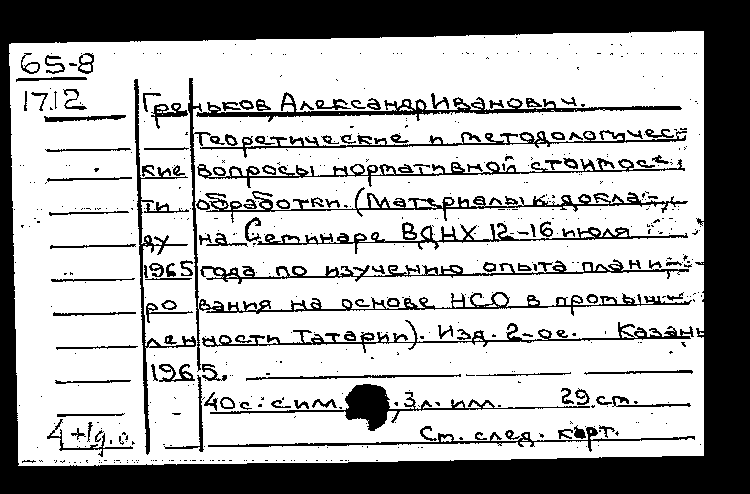 65-8
1712
Греньков, Александр Иванович.
Теоретические и методологичес
кие вопросы нормативной стоимос
ти обработки. (Материалы к докла
ду на Семинаре ВДНХ 12-16 июля
1965 года по изучению опыта плани
рования на основе НСО в промыш
ленности Татарии). Изд. 2-ое. Казань
1965.
40 с. с илл. , 3 л. илл. 29 см.
4+1д.о. См. след. карт.